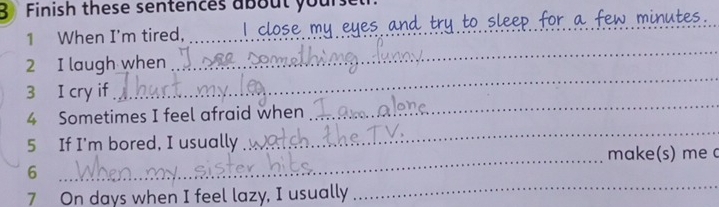 3 Finish these sentences about yourself.
1 When I'm tired, I close my eyes and try to sleep for a few minutes.
2 I laugh when I see something funny
3 I cry if I hurt my leg
4 Sometimes I feel afraid when I am alone
5 If I'm bored, I usually watch the TV.
6 When my sister hits make(s) me
7 On days when I feel lazy, I usually